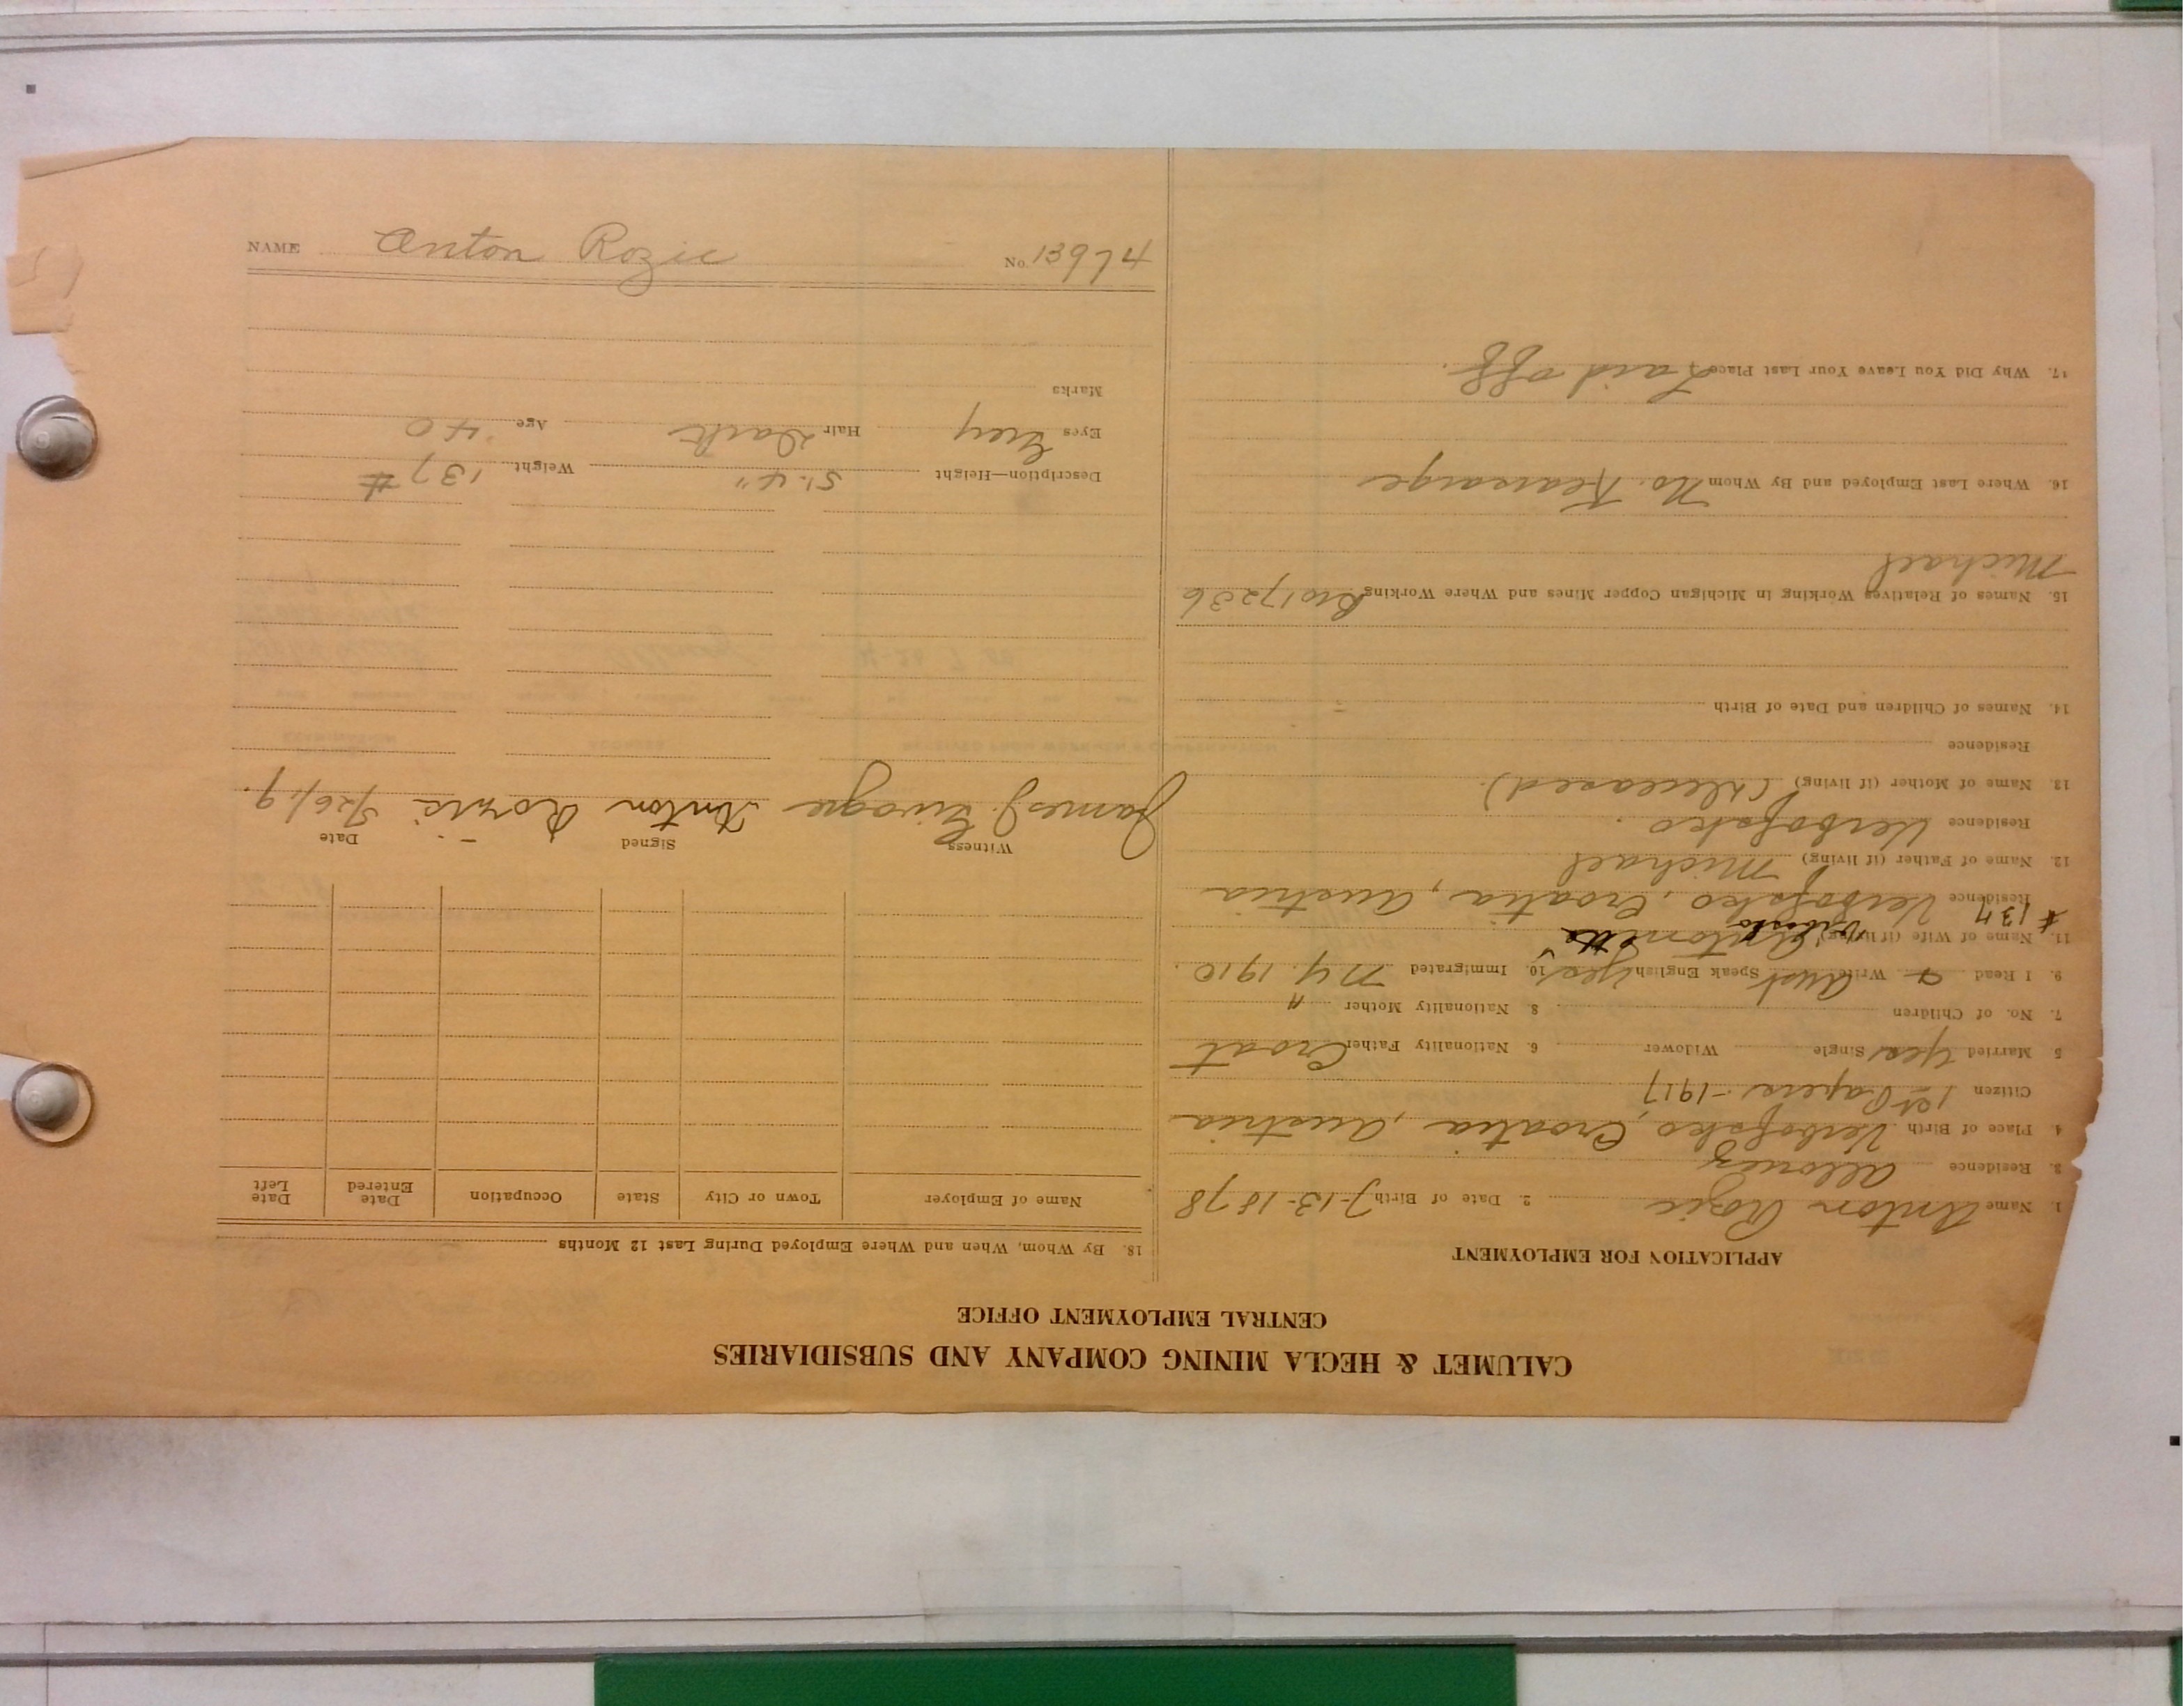 CALUMET & HECLA MINING COMPANY AND SUBSIDIARIES
CENTRAL EMPLOYMENT OFFICE
APPLICATION FOR EMPLOYMENT
1. Name Anton Rozic 2. Date of Birth 7-13-1878
3. Residence Allouez
4. Place of Birth Verbofsko, Croatia, Austria
Citizen 1st Papers - 1917
5 Married Yes Single Widower 6. Nationality Father Croat
7. No. of Children 8. Nationality Mother "
9. I Read + Write Aust Speak English Yes 10. Immigrated N.Y. 1910.
11. Name of Wife (if living) Antonette
# 137 Vrbosko
Residence Verbofsko, Croatia, Austria
12. Name of Father (if living) Michael
Residence Verbofsko.
13. Name of Mother (if living) (deceased).
Residence
14. Names of Children and Date of Birth
15. Names of Relatives Working in Michigan Copper Mines and Where Working Bro 17236
Michael
16. Where Last Employed and By Whom No. Kearsarge
17. Why Did You Leave Your Last Place Laid off.
18. By Whom, When and Where Employed During Last 12 Months
Name of Employer Town or City State Occupation Date Entered Date Left
Witness Signed Date
James J. Anton Rozic 5/26/19.
Description—Height 5'. 4" Weight 137 #
Eyes Grey Hair Dark Age 40
Marks
NAME Anton Rozic No. 13974